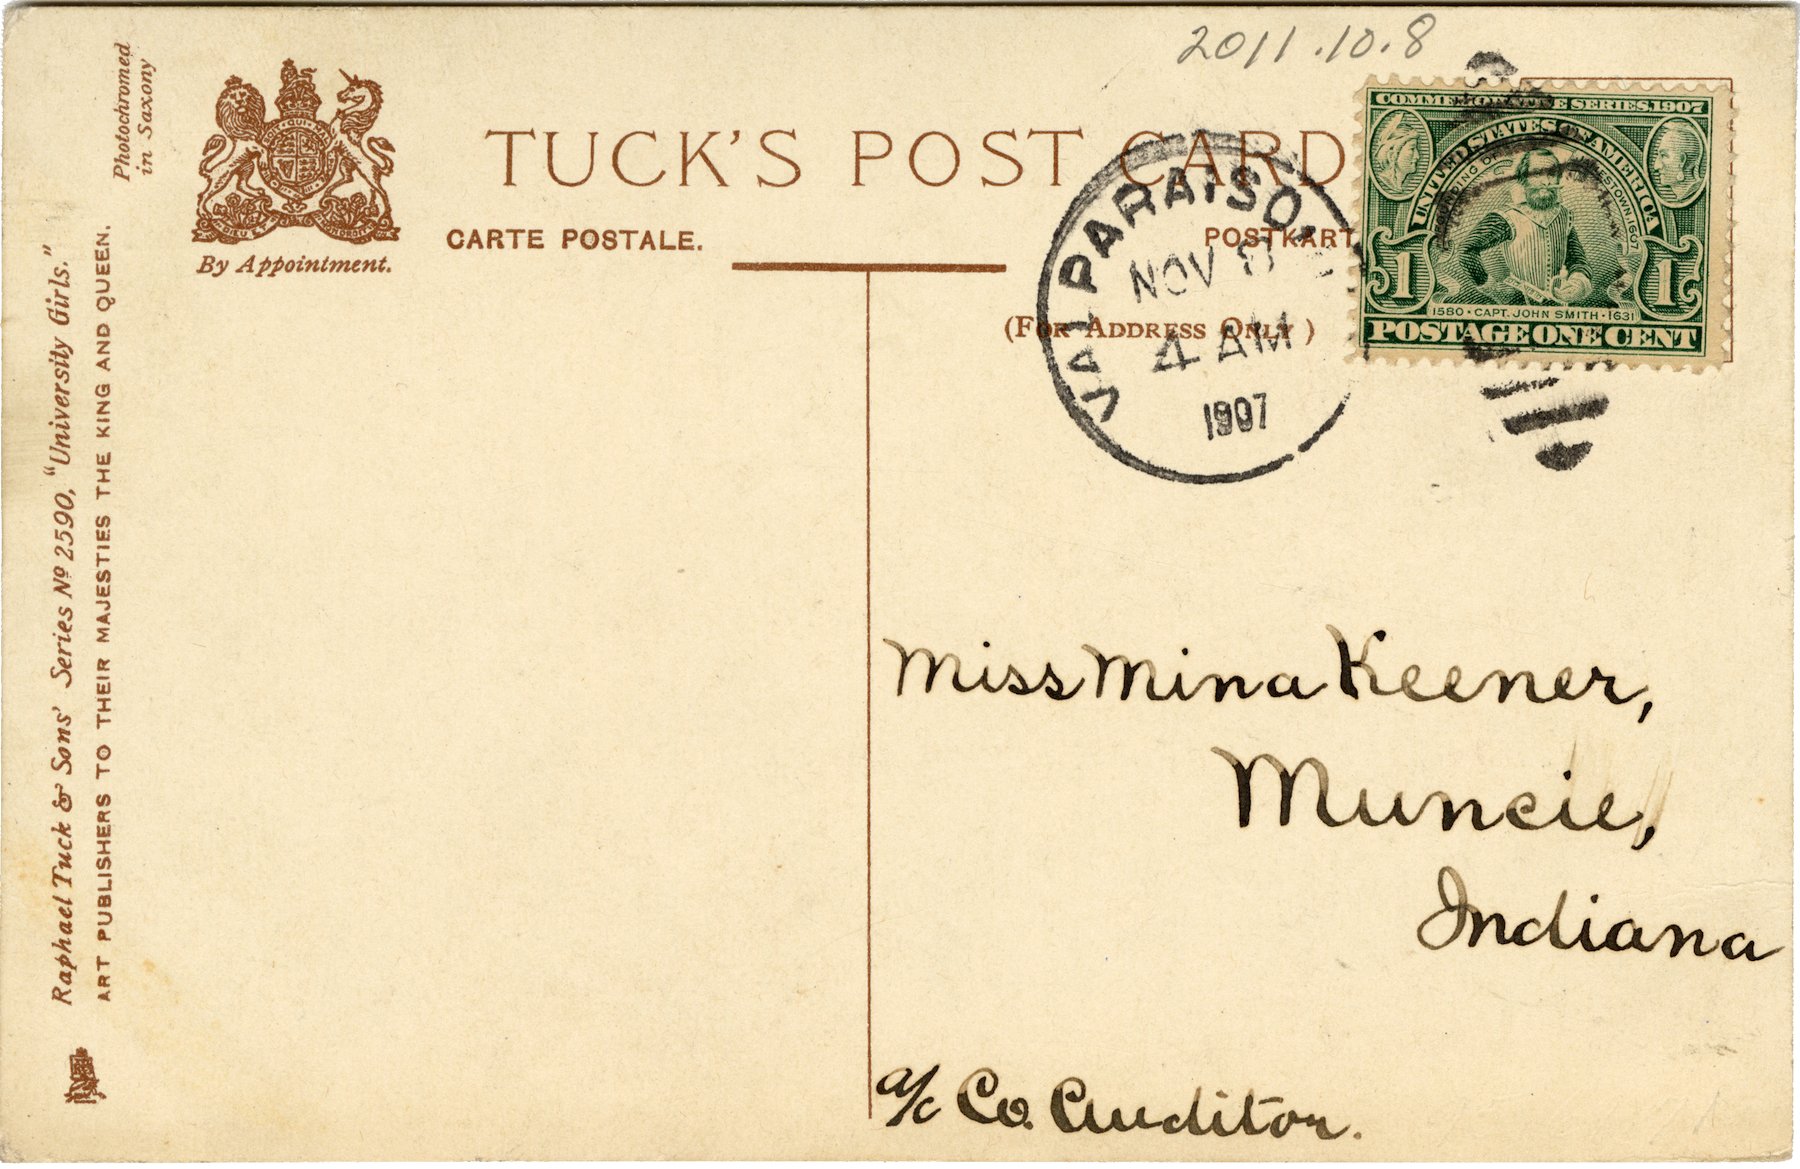 2011.10.8
Photochromed
in Saxony
TUCK'S POST CARD
CARTE POSTALE.
POSTKART
By Appointment.
(For Address Only)
Raphael Tuck & Sons' Series Nº 2590, "University Girls."
ART PUBLISHERS TO THEIR MAJESTIES THE KING AND QUEEN.
VALPARAISO,
NOV
4 AM
1907
COMMEMORATIVE SERIES, 1907
UNITED STATES OF AMERICA
FOUNDING OF JAMESTOWN, 1607
1 1
1580 · CAPT. JOHN SMITH · 1631
POSTAGE ONE CENT
Miss Mina Keener,
Muncie,
Indiana
a/c Co. Auditor.